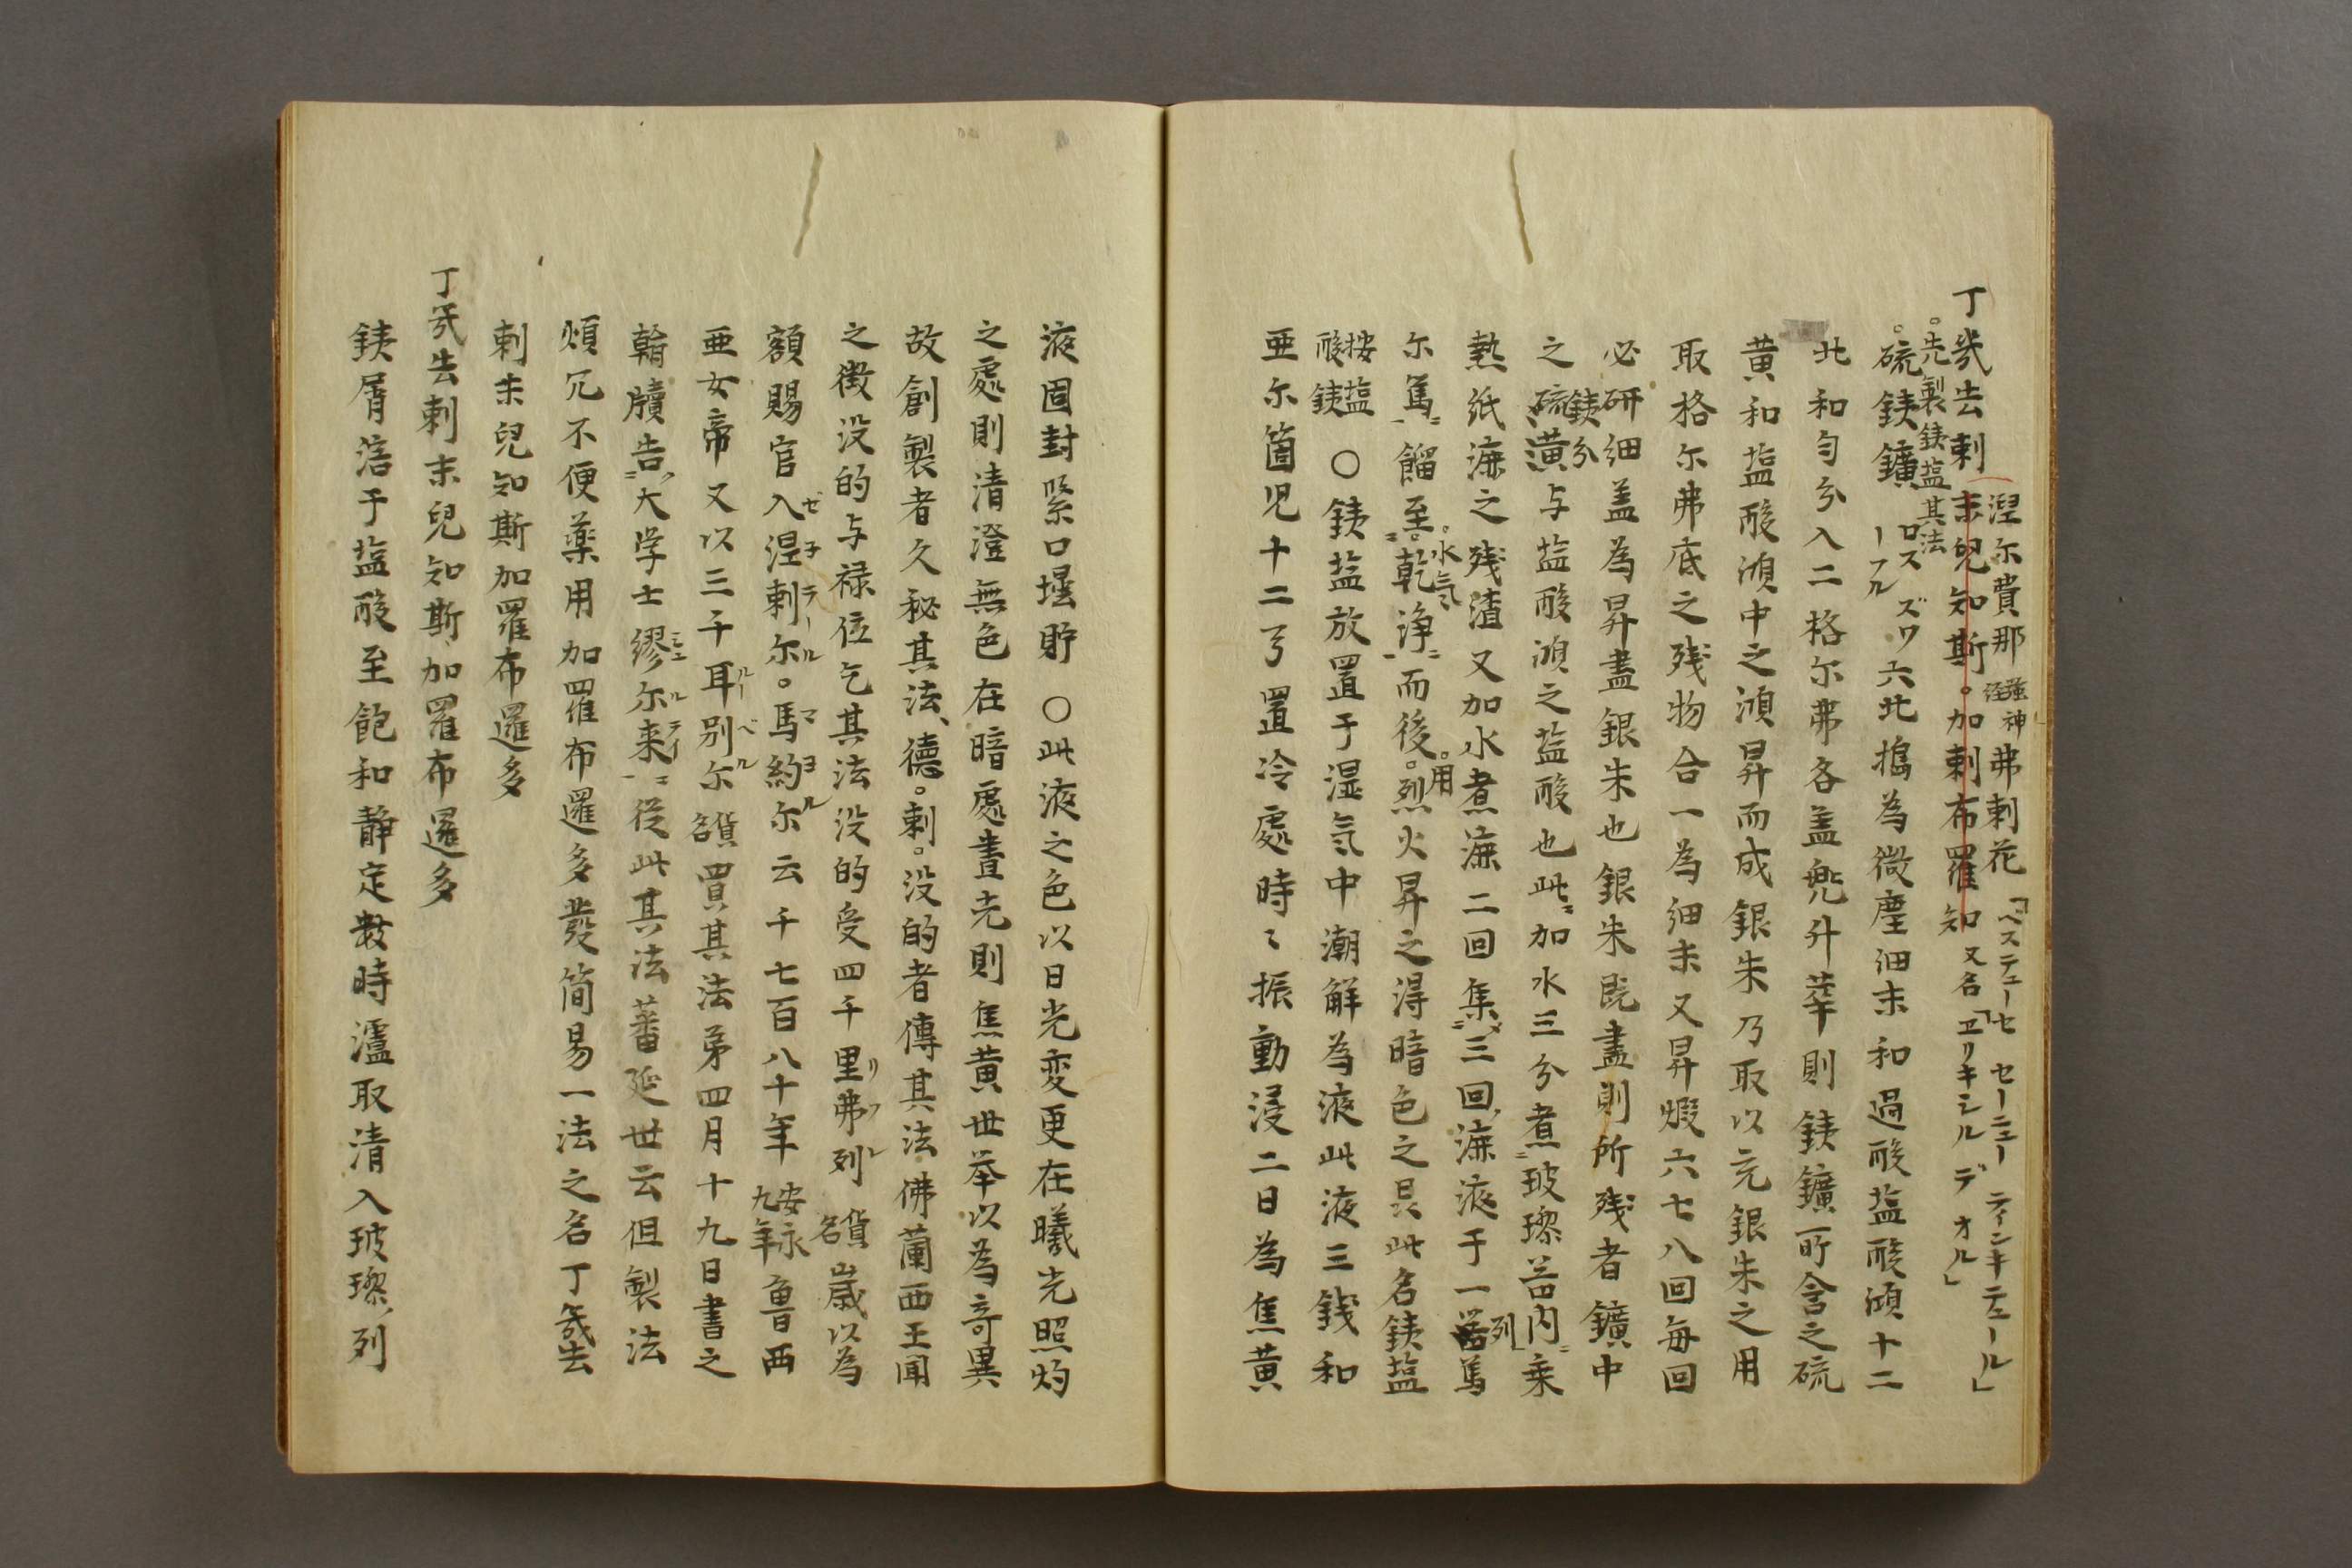 丁幾去刺末児知斯。加刺布羅知
涅尓費那 強神経 弗刺花「ベステューセ セーニュー ティンキテュール」
又名「ヱリキシル デ オル」
。先製銕塩其法
。硫銕鑛 ロズスーフル ズワ 六北搗為微塵細末和過酸塩酸澒十二
北和匀分入二格尓弗各盖兜升華則銕鑛所含之硫
黄和塩酸澒中之澒昇而成銀朱乃取以充銀朱之用
取格尓弗底之残物合一為細末又昇煅六七八回毎回
必研細盖為昇盡銀朱也銀朱既盡則所残者鑛中
之銕分硫黄与塩酸澒之塩酸也此加水三分煮玻瓈器内乗
熱紙漉之残渣又加水煮漉二回集三回漉液于一器列篤
尓篤餾至水気乾浄而後。用烈火昇之得暗色之昆此名銕塩
按塩酸銕 〇銕塩放置于湿気中潮解為液此液三銭和
亜尓箇児十二弓置冷處時々振動浸二日為焦黄
液固封緊口壜貯 〇此液之色以日光変更在曦光照灼
之處則清澄無色在暗處晝光則焦黄世挙以為竒異
故創製者久秘其法、徳。刺。没的者傳其法佛蘭西王聞
之徴没的与禄位乞其法没的受四千里弗列 貨名 歳以為
額賜官入涅刺尓。馬約尓云千七百八十年 安永九年 魯西
亜女帝又以三千耳別尓 貨名 買其法弟四月十九日書之
翰牘告大学士繆尓来従此其法蕃延世云但製法
煩冗不便薬用加羅布邏多發简易一法之名丁幾去
刺末兒知斯加羅布邏多
丁幾去刺末兒知斯加羅布邏多
銕屑涪于塩酸至飽和静定数時瀘取清入玻瓈列